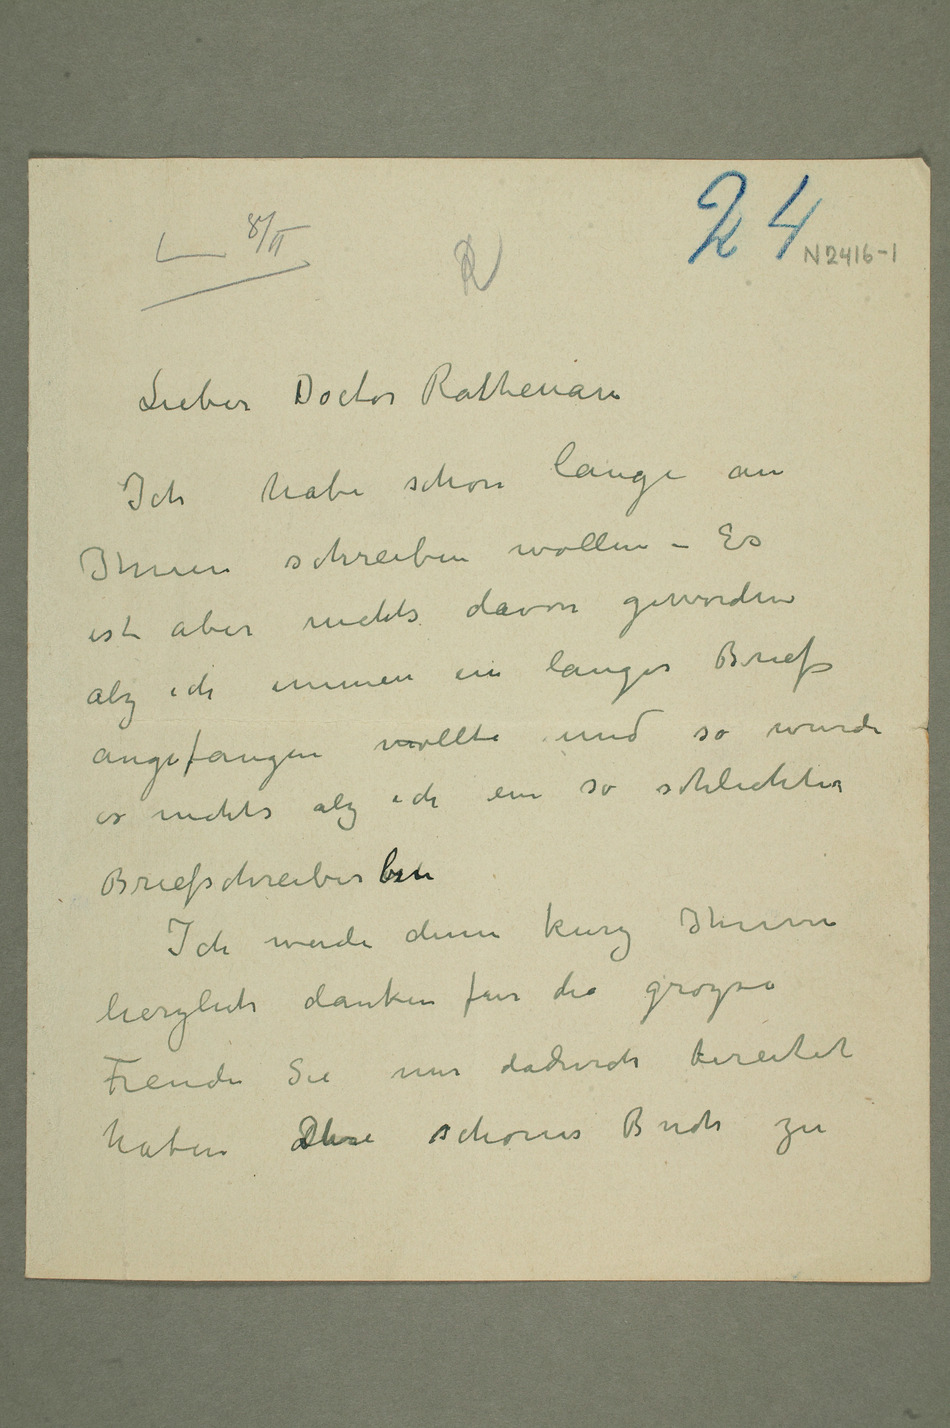 8/II
24
N2416-1
Lieber Doctor Rathenau
Ich habe schon lange an
Ihnen schreiben wollen – Es
ist aber nichts davon geworden
alz ich immer ein langes Brief
angefangen wollte und so wurde
es nichts alz ich ein so schlechter
Briefschreiber bin
Ich werde denn kurz Ihnen
herzlich danken für die groyse
Freude Sie mir dadurch bereitet
haben Ihre schönes Buch zu